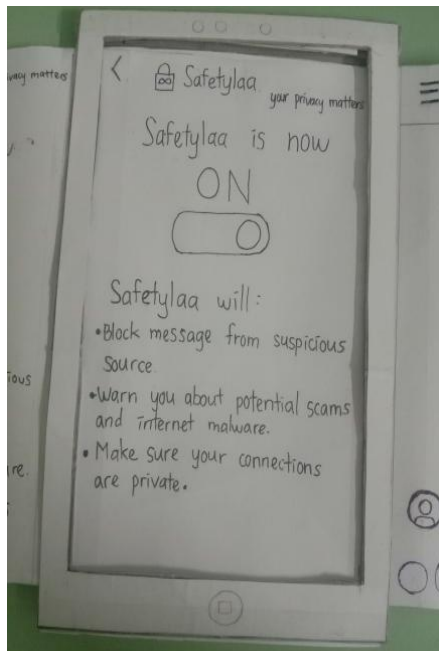 vacy matters
< Safetylaa
your privacy matters
Safetylaa is now
ON
Safetylaa will:
•Block message from suspicious
source.
•Warn you about potential scams
and internet malware.
• Make sure your connections
are private.
ious
re.